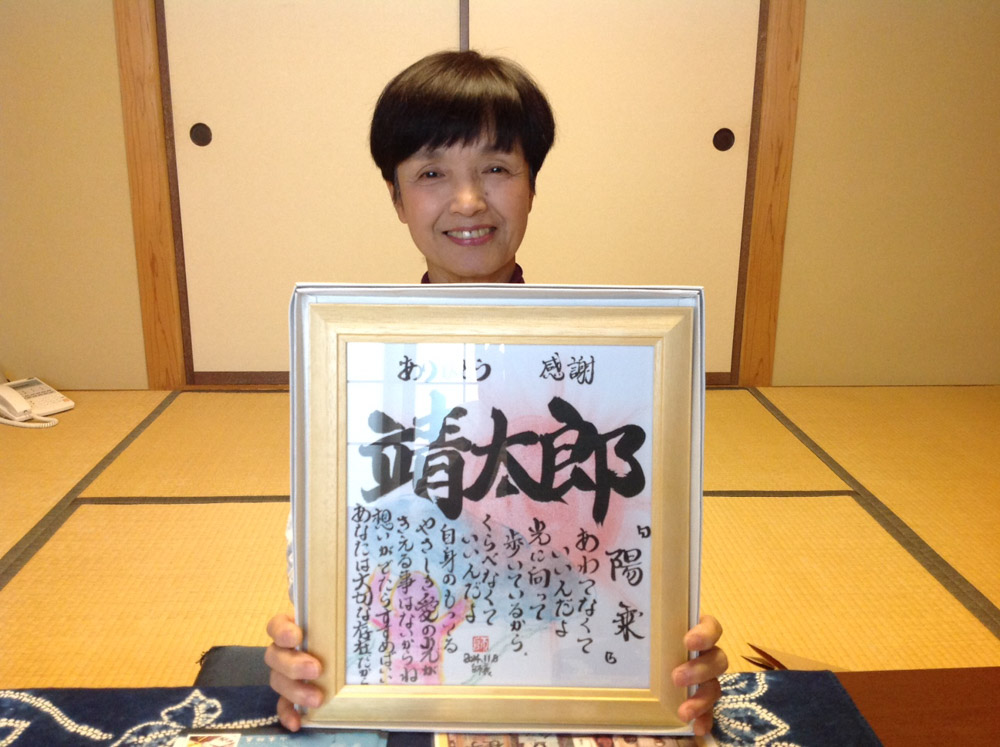 ありがとう 感謝
靖太郎
「陽乗」
あわてなくて
いいんだよ
光に向って
歩いているから、
くらべなくて
いいんだよ
自身のもってる
やさしき愛の光が
きえる事はないからね
想いがでたらすすめばいい
あなたは大切な存在だから
2014.11.8